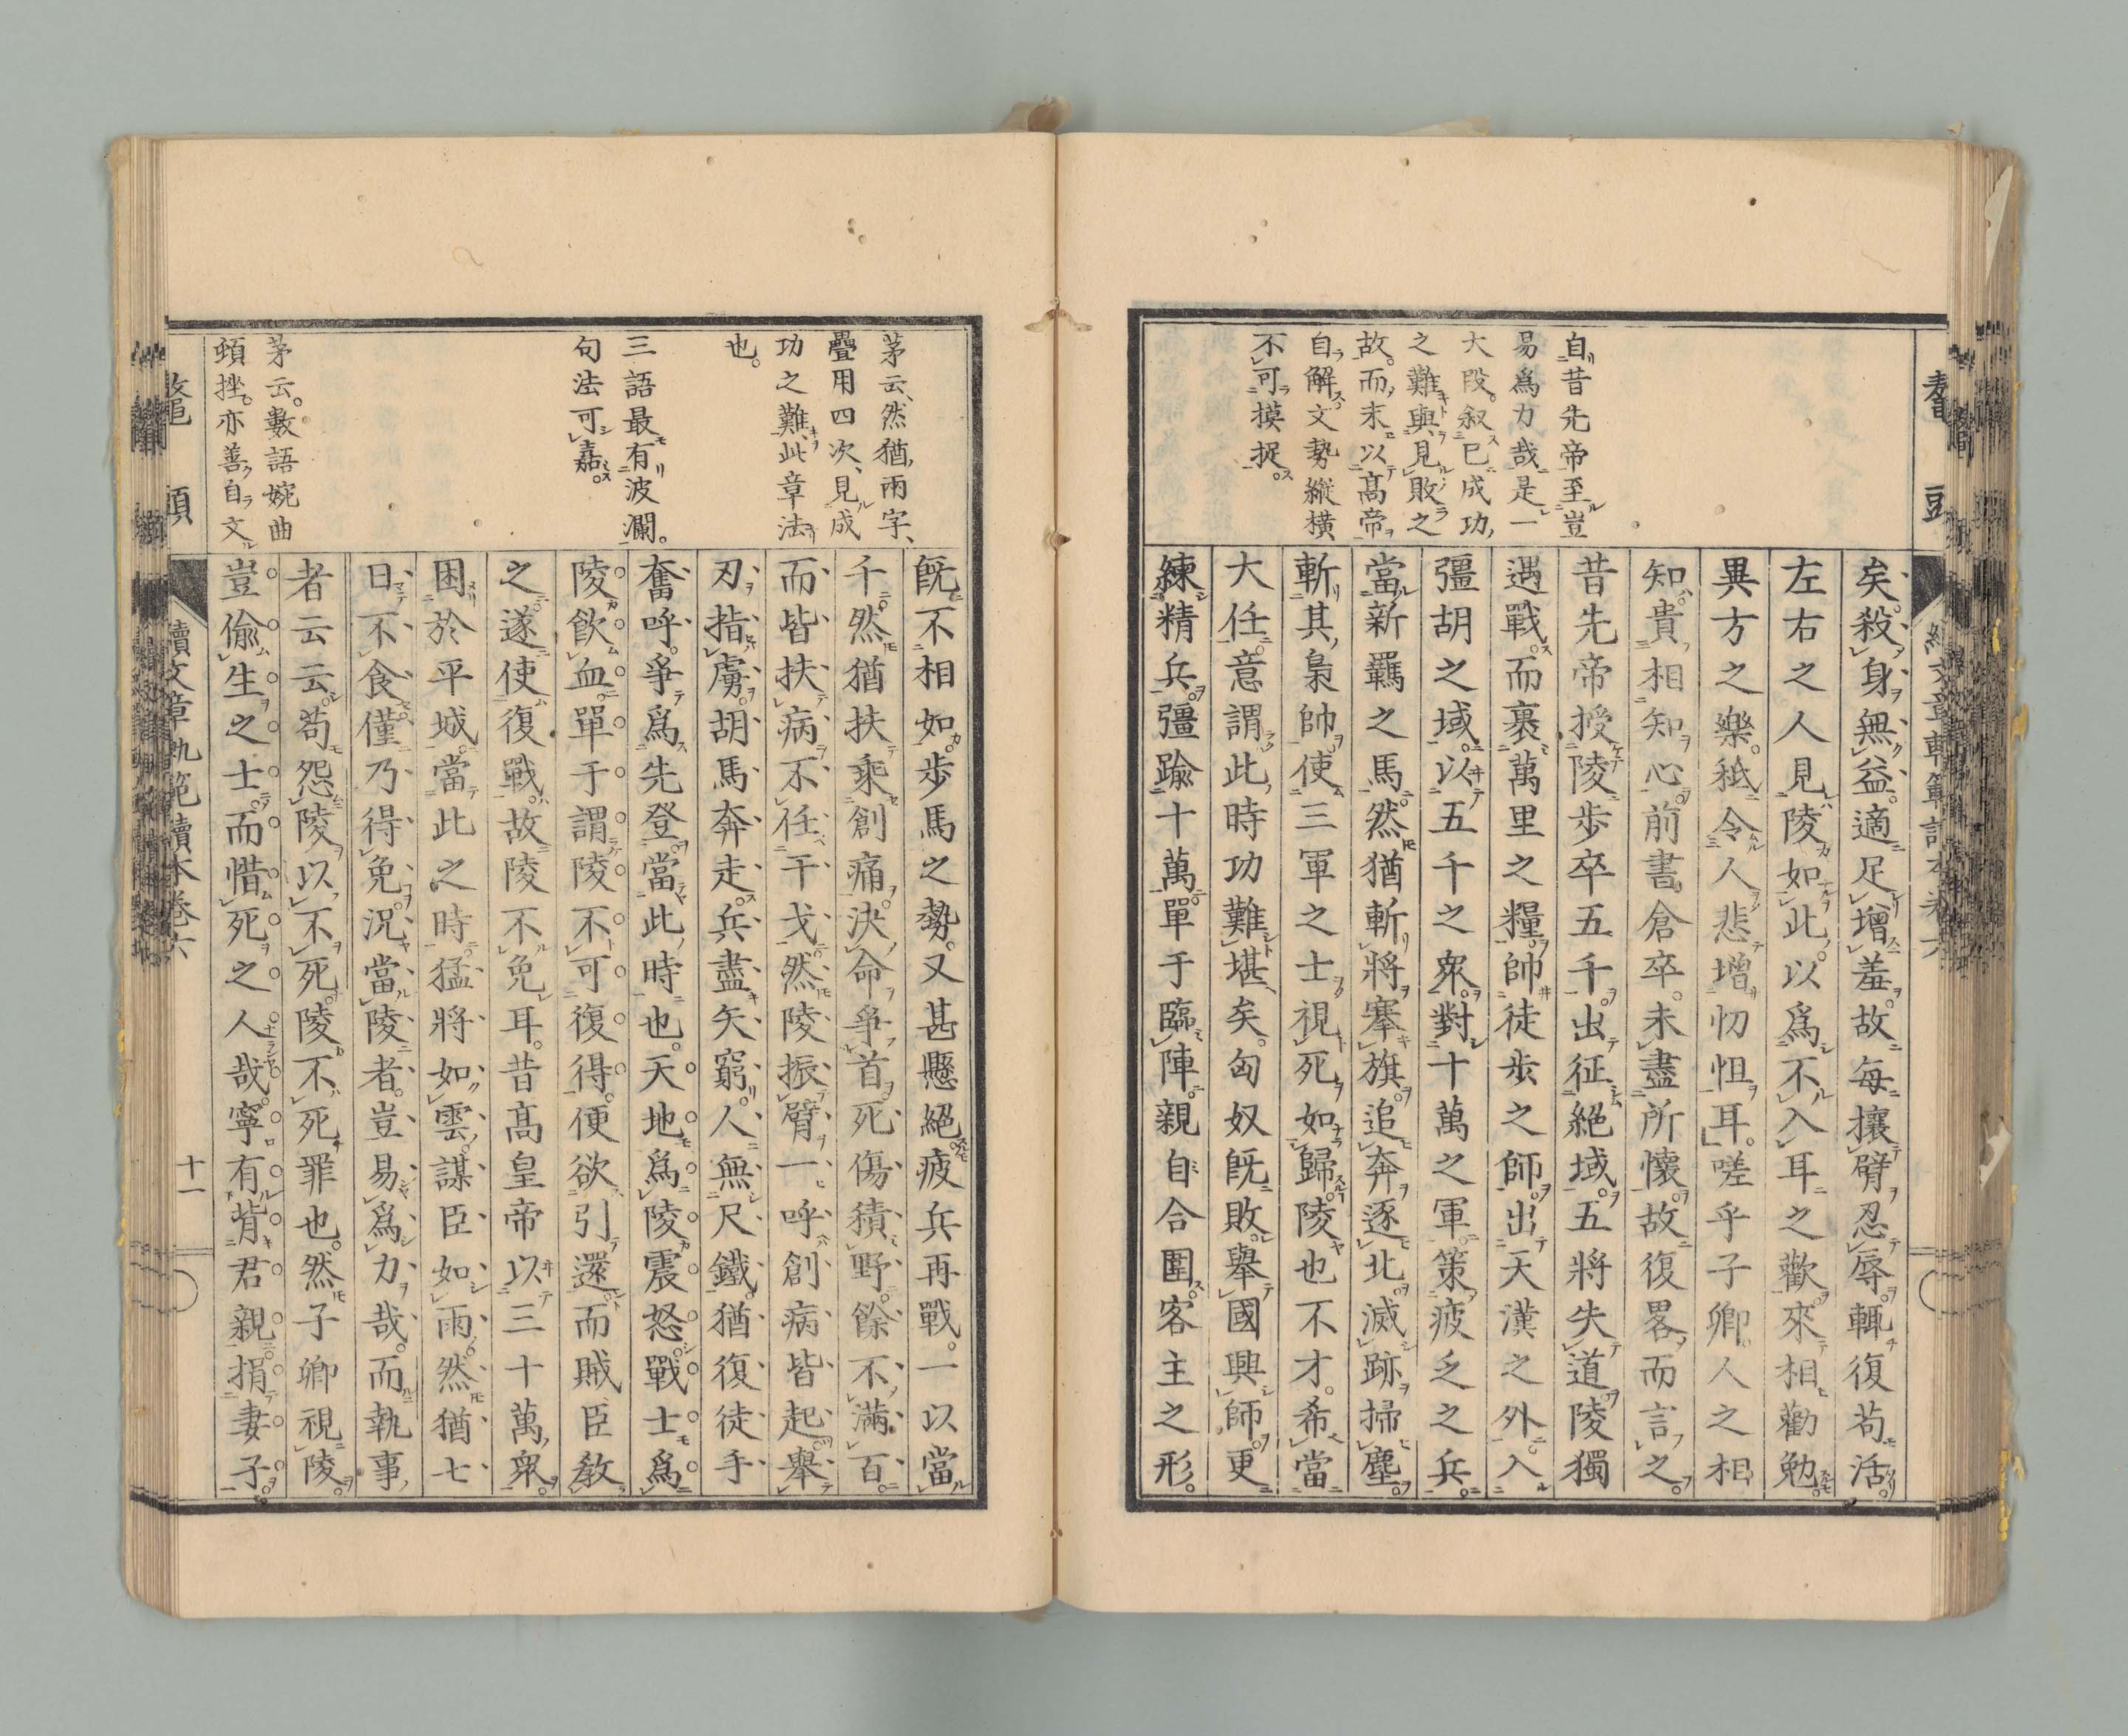 自昔先帝至豈
易爲力哉是一
大段。叙已成功
之難與見敗之
故。而末以高帝
自解文勢縱橫
不可摸捉。
矣。殺身無益。適足增羞。故每攘臂忍辱。輒復苟活。
左右之人見陵如此。以爲不入耳之歡。來相勸勉。
異方之樂。秪令人悲增忉怛耳。嗟乎子卿。人之相
知。貴相知心。前書倉卒。未盡所懷。故復畧而言之。
昔先帝授陵步卒五千。出征絕域。五將失道。陵獨
遇戰。而裹萬里之糧。帥徒步之師。出天漢之外。入
彊胡之域。以五千之衆。對十萬之軍。策疲乏之兵。
當新羈之馬。然猶斬將搴旗。追奔逐北。滅跡掃塵。
斬其梟帥。使三軍之士視死如歸。陵也不才。希當
大任。意謂此時功難堪矣。匈奴旣敗。舉國興師。更
練精兵。彊踰十萬。單于臨陣。親自合圍。客主之形。
茅云、然猶兩字、
疊用四次、見成
功之難、此章法
也。
三語最有波瀾。
句法可嘉。
茅云。數語婉曲
頓挫。亦善自文
旣不相如。步馬之勢。又甚懸絕。疲兵再戰。一以當
千。然猶扶乘創痛。決命爭首。死傷積野。餘不滿百。
而皆扶病。不任干戈。然陵振臂一呼。創病皆起。舉
刃指虜。胡馬奔走。兵盡矢窮。人無尺鐵。猶復徒手
奮呼。爭爲先登。當此時也。天地爲陵震怒。戰士爲
陵飮血。單于謂陵不可復得。便欲引還。而賊臣敎
之。遂使復戰。故陵不免耳。昔高皇帝以三十萬衆。
困於平城。當此之時。猛將如雲。謀臣如雨。然猶七
日不食。僅乃得免。況當陵者。豈易爲力哉。而執事
者云云。苟怨陵以不死。陵不死罪也。然子卿視陵。
豈偷生之士。而惜死之人哉。寧有背君親。捐妻子。
十一